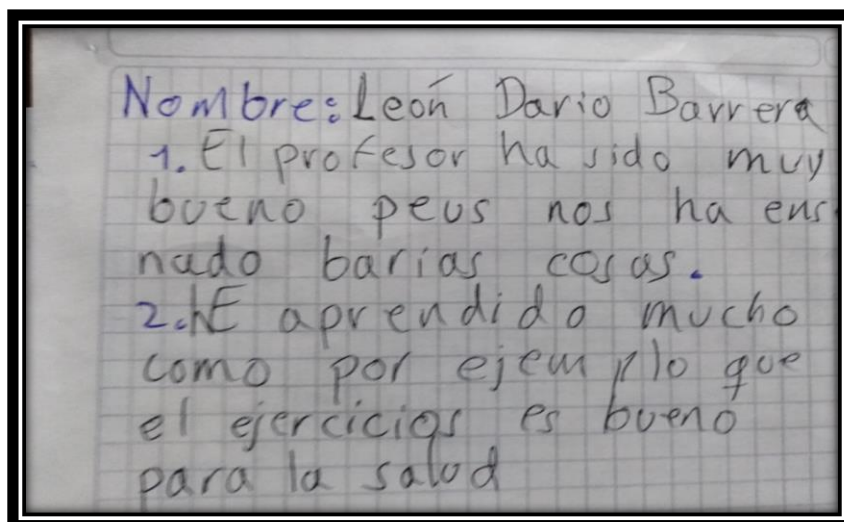 Nombre: León Dario Barrera
1. El profesor ha sido muy
bueno peus nos ha ens
nado barias cosas.
2. hE aprendido mucho
como por ejemplo que
el ejercicios es bueno
para la salud